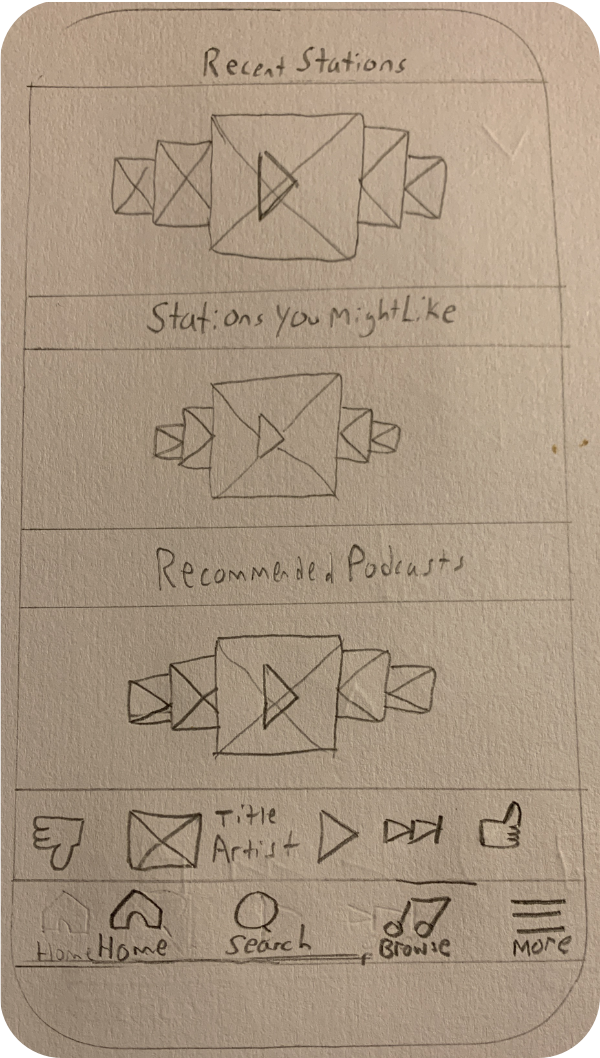 Recent Stations
Stations You Might Like
Recommended Podcasts
Title
Artist
Home Home Search Browse More